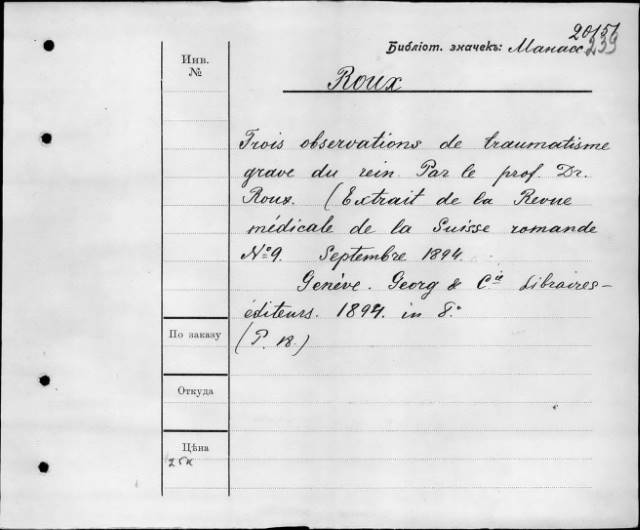 20151
Библіот. значекъ: Манасс 239
Инв.
№
Roux
Trois observations de traumatisme
grave du rein. Par le prof. Dr.
Roux. (Extrait de la Revue
médicale de la Suisse romande
№ 9. Septembre 1894.
Genève. Georg & Cie Libraires-
éditeurs. 1894. in 8.°
(P. 18.)
По заказу
Откуда
Цѣна
25к